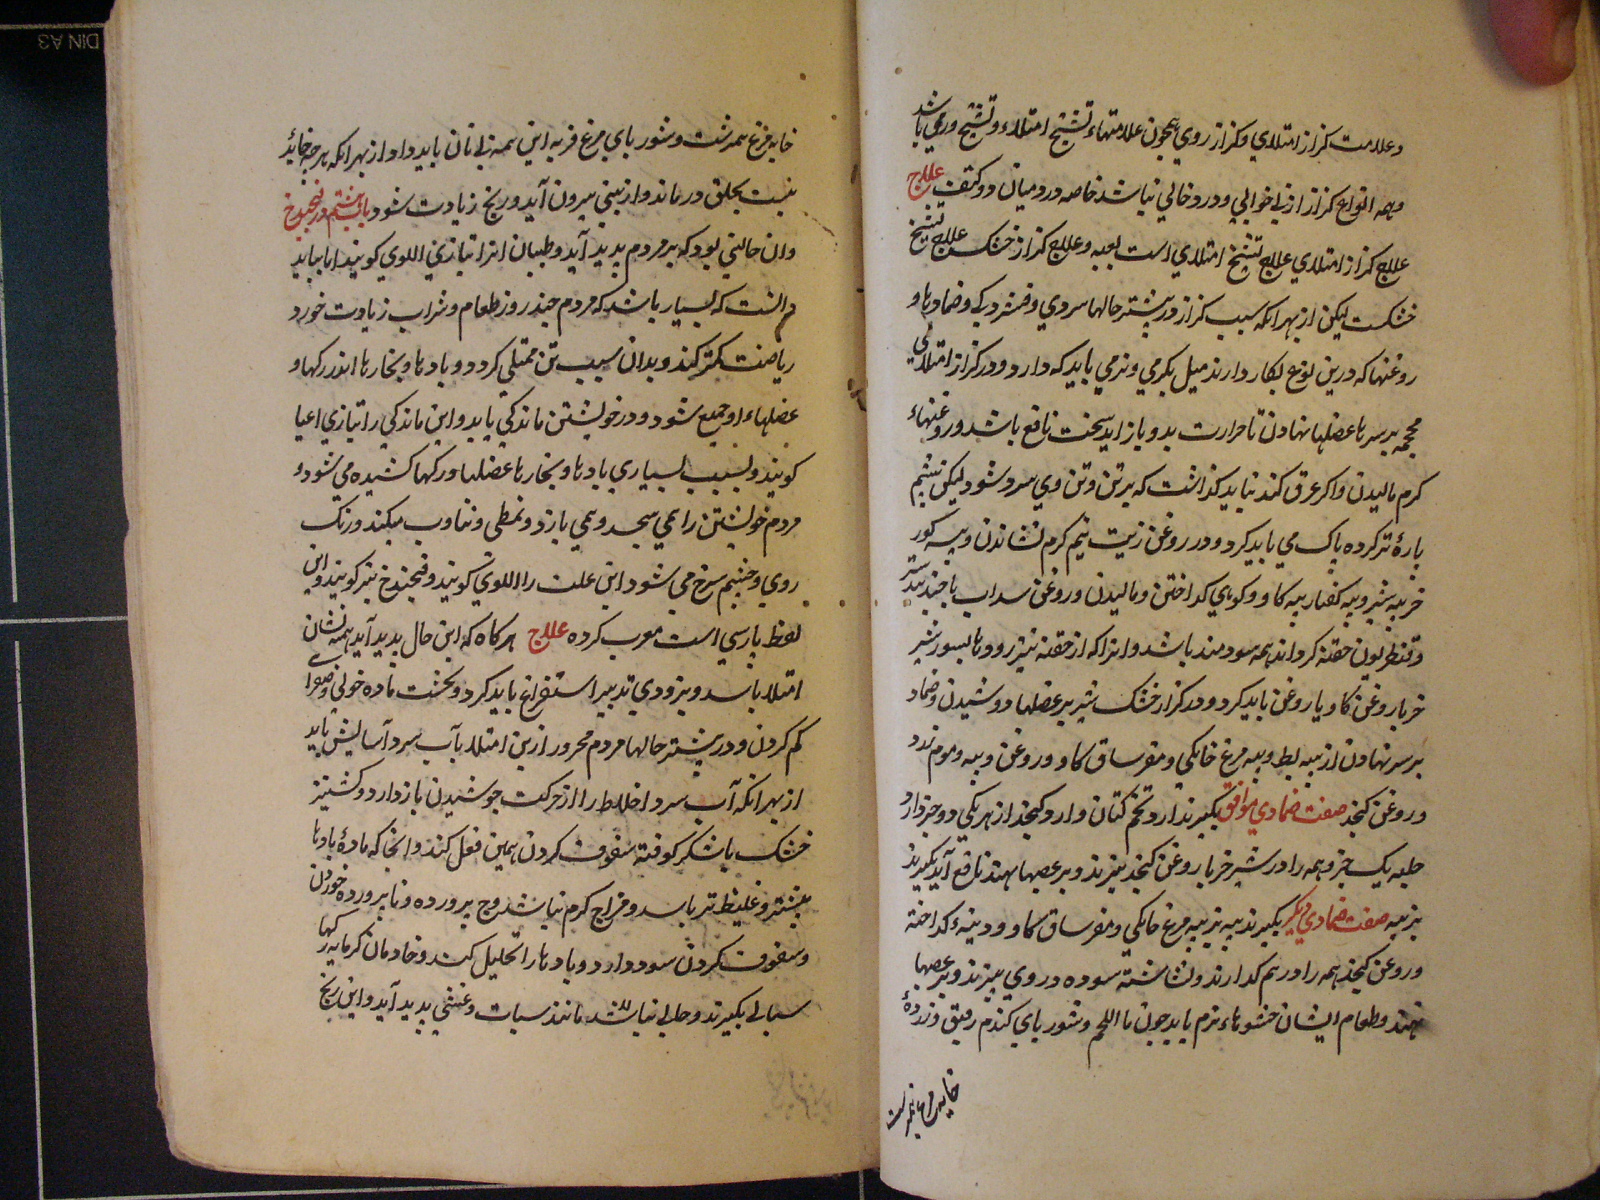 وعلامت کزاز امتلای وکزاز روی همچون علامتهاء تشنج امتلاء وتشنج ورمی باشد
وهمه انواع کزاز از بی خوابی ودرد خالی نباشد خاصه درد میان دو کتف علاج
علاج کزاز امتلای علاج تشنج امتلای است بعینه وعلاج کزاز خشک علاج تشنج
خشکست لیکن از بهر انکه سبب کزاز در بیشتر حالها سردی وفسردیکی وضمادها و
روغنها که درین نوع بکار دارند میل بکرمی ونرمی باید که دارد ودر کزاز امتلای
محجمه بر سرهاء عضلها نهادن تا حرارت بدو باز اید سخت نافع باشد وروغنهاء
کرم مالیدن واکر عرق کند نباید کذاشت که بر تن وتن وی سرد شود لیکن بشم
پارهٔ تر کرده پاک می باید کرد ودر روغن زیت نیم کرم نشاندن وپیه کور
خر وپیه شیر وپیه کفتار وپیه کاو کوهی کداختن ومالیدن وروغن سداب با جندبیدستر
وقنطریون حقنه کردن همه سودمند باشد وانرا که از حقنه تیز رود تا بسوزد شیر
خر با روغن کاو یا روغن باید کرد ودر کزاز خشک شیر بر عضلها دوشیدن وضماد
بر سر نهادن از پیه بط وپیه مرغ خانکی ومغز ساق کاو وروغن وپیه وموم زرد
وروغن کنجد صفت ضمادی موافق بکیرند ارد تخم کتان وارد کنجد از هر یکی دو جزو ارد
حلبه یک جزو همه را در شیر خر با روغن کنجد بپزند وبر عصبها نهند نافع آید بکیرند
بز پیه صفت ضمادی دیکر بکیرند پیه بز پیه مرغ خانکی ومغز ساق کاو ودنبهٔ کداخته
وروغن کنجد همه را در هم کدازند ونشاسته سوده در وی بپزند وبر عصبها
نهند وطعام ایشان حشوهاء نرم باید چون ماء اللحم وشوربای کندم رقیق وزردهٔ
خایه مرغ نیم برشت
خایه مرغ نیمبرشت وشوربای مرغ فربه این همه زمانان باید داد از بهر انکه هر چه خاید
نیست بحلق در ماند واز بینی بیرون آید ورنج زیادت شود باب هشتم در فنجیوخ
وان حالتی بود که بر مردم پدید آید وطبیبان انرا بتازی اللوی کویند اما بباید
دانست که بسیار باشد که مردم چند روز طعام وشراب زیادت خورد
ریاضت کمتر کند وبدان سبب تن ممتلی کردد وبادها وبخارها اندر رکها و
عضلهاء او جمع شود ودر خویشتن ماندکی یابد واین ماندکی را بتازی اعیا
کویند وبسبب بسیاری بادها وبخارها عضلها ورکها کشیده می شود و
مردم خویشتن را همی پیچد وهمی یازد وتمطی وتثاوب میکند ورنک
روی وچشم سرخ می شود این علت را اللوی کویند وفنجیوخ نیز کویند واین
لفظ پارسی است معرب کرده علاج هر کاه که این حال پدید آید همه نشان
امتلا باشد وبزودی تدبیر استفراغ باید کرد ونخست ماده خونی وصفرا
کم کردن ودر بیشتر حالها مردم محرور ازین امتلا بآب سرد آسایش یابد
از بهر انکه آب سرد اخلاط را از حرکت وجوشیدن باز دارد وکشنیز
خشک با شکر کوفته سفوف کردن همین فعل کند وانجا که مادهٔ بادها
بیشتر وغلیظ تر باشد ومزاج کرم نباشد وج پرورده ونا پرورده خوردن
وسفوف کردن سود دارد وبادها را تحلیل کند وخادمان کرمابه رکها
سباتی بکیرند وحالی نباشد مانند سبات وغشی پدید آید واین رنج